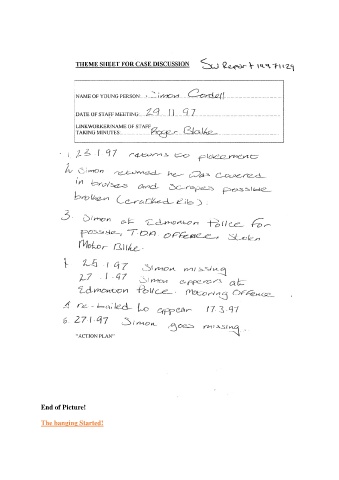 THEME SHEET FOR CASE DISCUSSION
SW Report 19971129
NAME OF YOUNG PERSON: Simon Cordell
DATE OF STAFF MEETING: 29.11.97
LINKWORKER/NAME OF STAFF
TAKING MINUTES: Roger Blake
1, 23.1.97 returns to placement
2, Simon returned he was covered
in bruises and scrapes possible
broken (cracked Rib).
3. Simon at Edmonton Police for
possible, T.D.A OFFENCE, Stolen
Motor Bike.
25.1.97 Simon missing
27.1.97 Simon appears at
Edmonton Police. Motoring Offence
re-bailed to appear 17.3.97
6. 27.1.97 Simon goes missing.
"ACTION PLAN"
End of Picture!
The hanging Started!